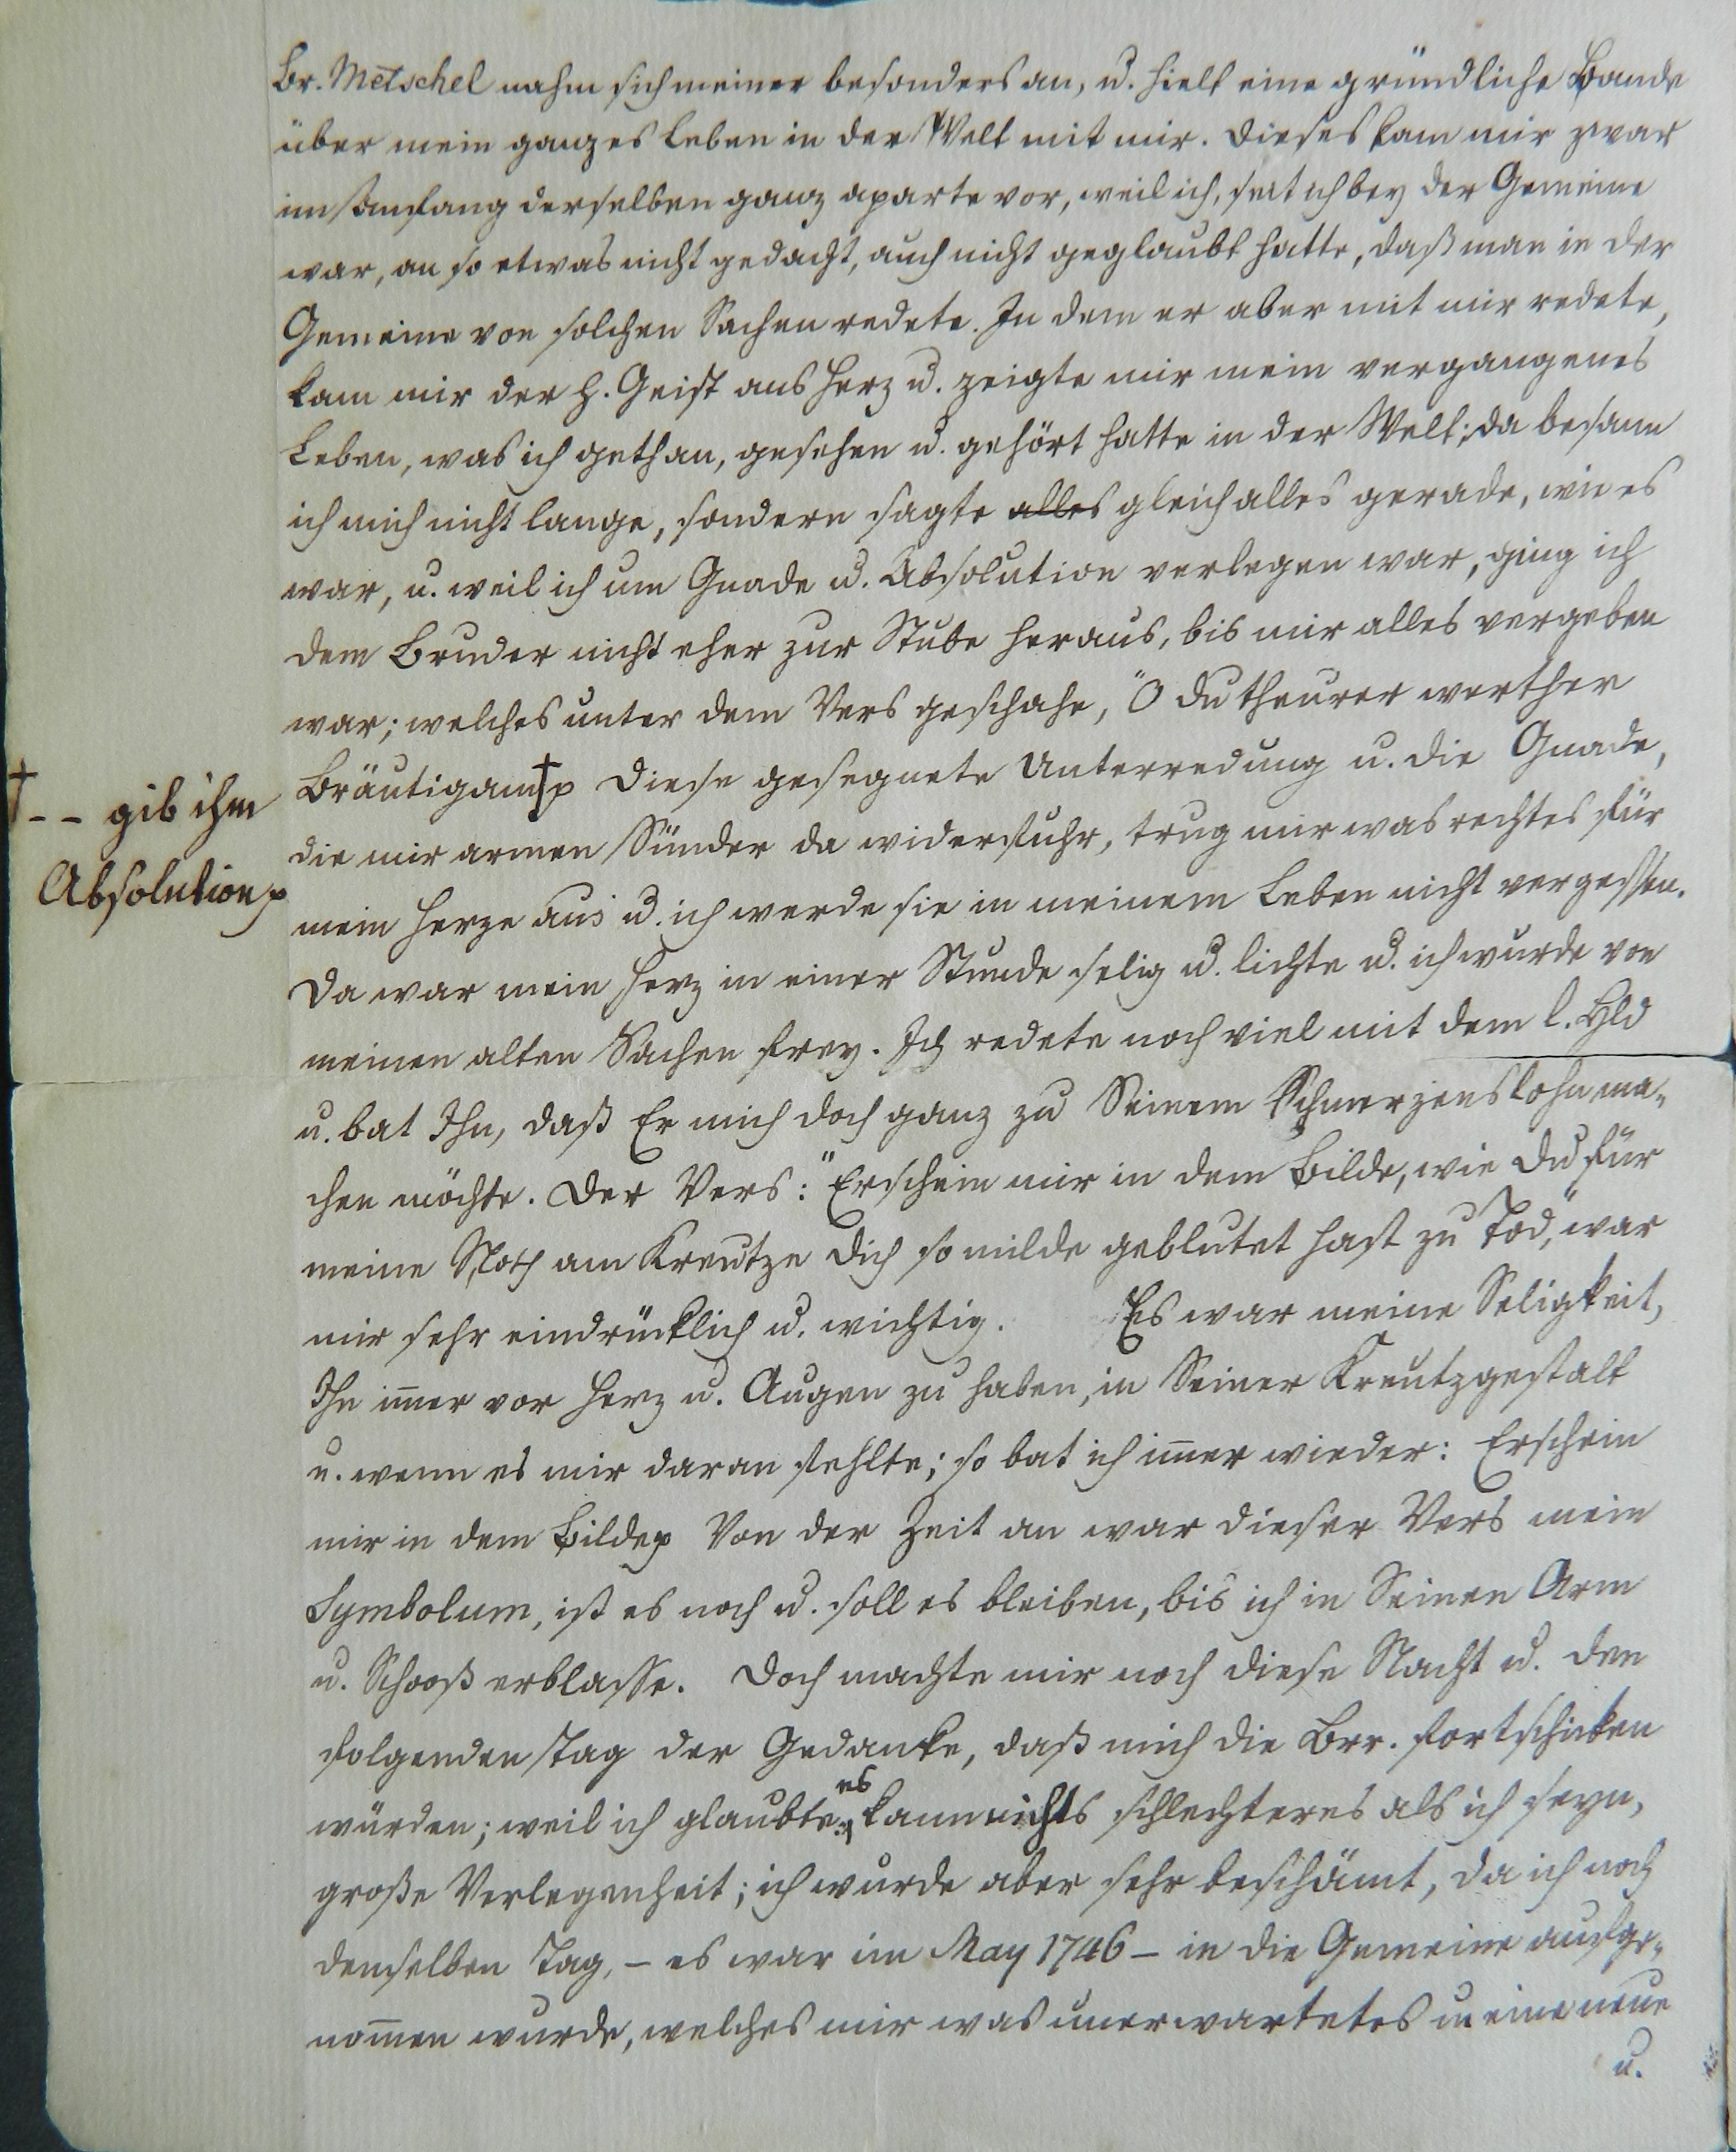 Br. Metschel nahm sich meiner besonders an, u. hielt eine gründliche Bande
über mein ganzes Leben in der Welt mit mir. Dieses kam mir zwar
im Anfang derselben ganz aparte vor, weil ich, seit ich bey der Gemeine
war, an so etwas nicht gedacht, auch nicht geglaubt hatte, daß man in der
Gemeine von solchen Sachen redete. In dem er aber mit mir redete,
kam mir der h. Geist ans Herz u. zeigte mir mein vergangenes
Leben, was ich gethan, gesehen u. gehört hatte in der Welt; da besann
ich mich nicht lange, sondern sagte alles gleich alles gerade, wie es
war, u. weil ich um Gnade u. Absolution verlegen war, ging ich
dem Bruder nicht eher zur Stube heraus, bis mir alles vergeben
war; welches unter dem Vers geschahe, "O du theurer werther
Bräutigam † p Diese gesegnete Unterredung u. die Gnade,
†-- gib ihm
Absolution p
die mir armen Sünder da widerfuhr, trug mir was rechtes für
mein Herze aus u. ich werde sie in meinem Leben nicht vergessen.
Da war mein Herz in einer Stunde selig u. lichte u. ich wurde von
meinen alten Sachen frey. Ich redete noch viel mit dem l. Hld
u. bat Ihn, daß Er mich doch ganz zu Seinem Schmerzenslohn ma-
chen möchte. Der Vers: "Erschein mir in dem Bilde, wie Du für
meine Noth am Kreutze Dich so milde geblutet hast zu Tod," war
mir sehr eindrücklich u. wichtig. Es war meine Seligkeit,
Ihn im̅er vor Herz u. Augen zu haben, in Seiner Kreutzgestalt
u. wenn es mir daran fehlte; so bat ich im̅er wieder: Erschein
mir in dem Bilde p Von der Zeit an war dieser Vers mein
Symbolum, ist es noch u. soll es bleiben, bis ich in Seinen Arm
u. Schooß erblasse. Doch machte mir noch diese Nacht u. den
folgenden Tag der Gedanke, daß mich die Brr. fortschicken
würden; weil ich glaubte: es kann nichts schlechteres als ich seyn,
große Verlegenheit; ich wurde aber sehr beschämt, da ich noch
denselben Tag, – es war im May 1746 – in die Gemeine aufge-
nom̅en wurde, welches mir was unerwartetes u eine neue
u.